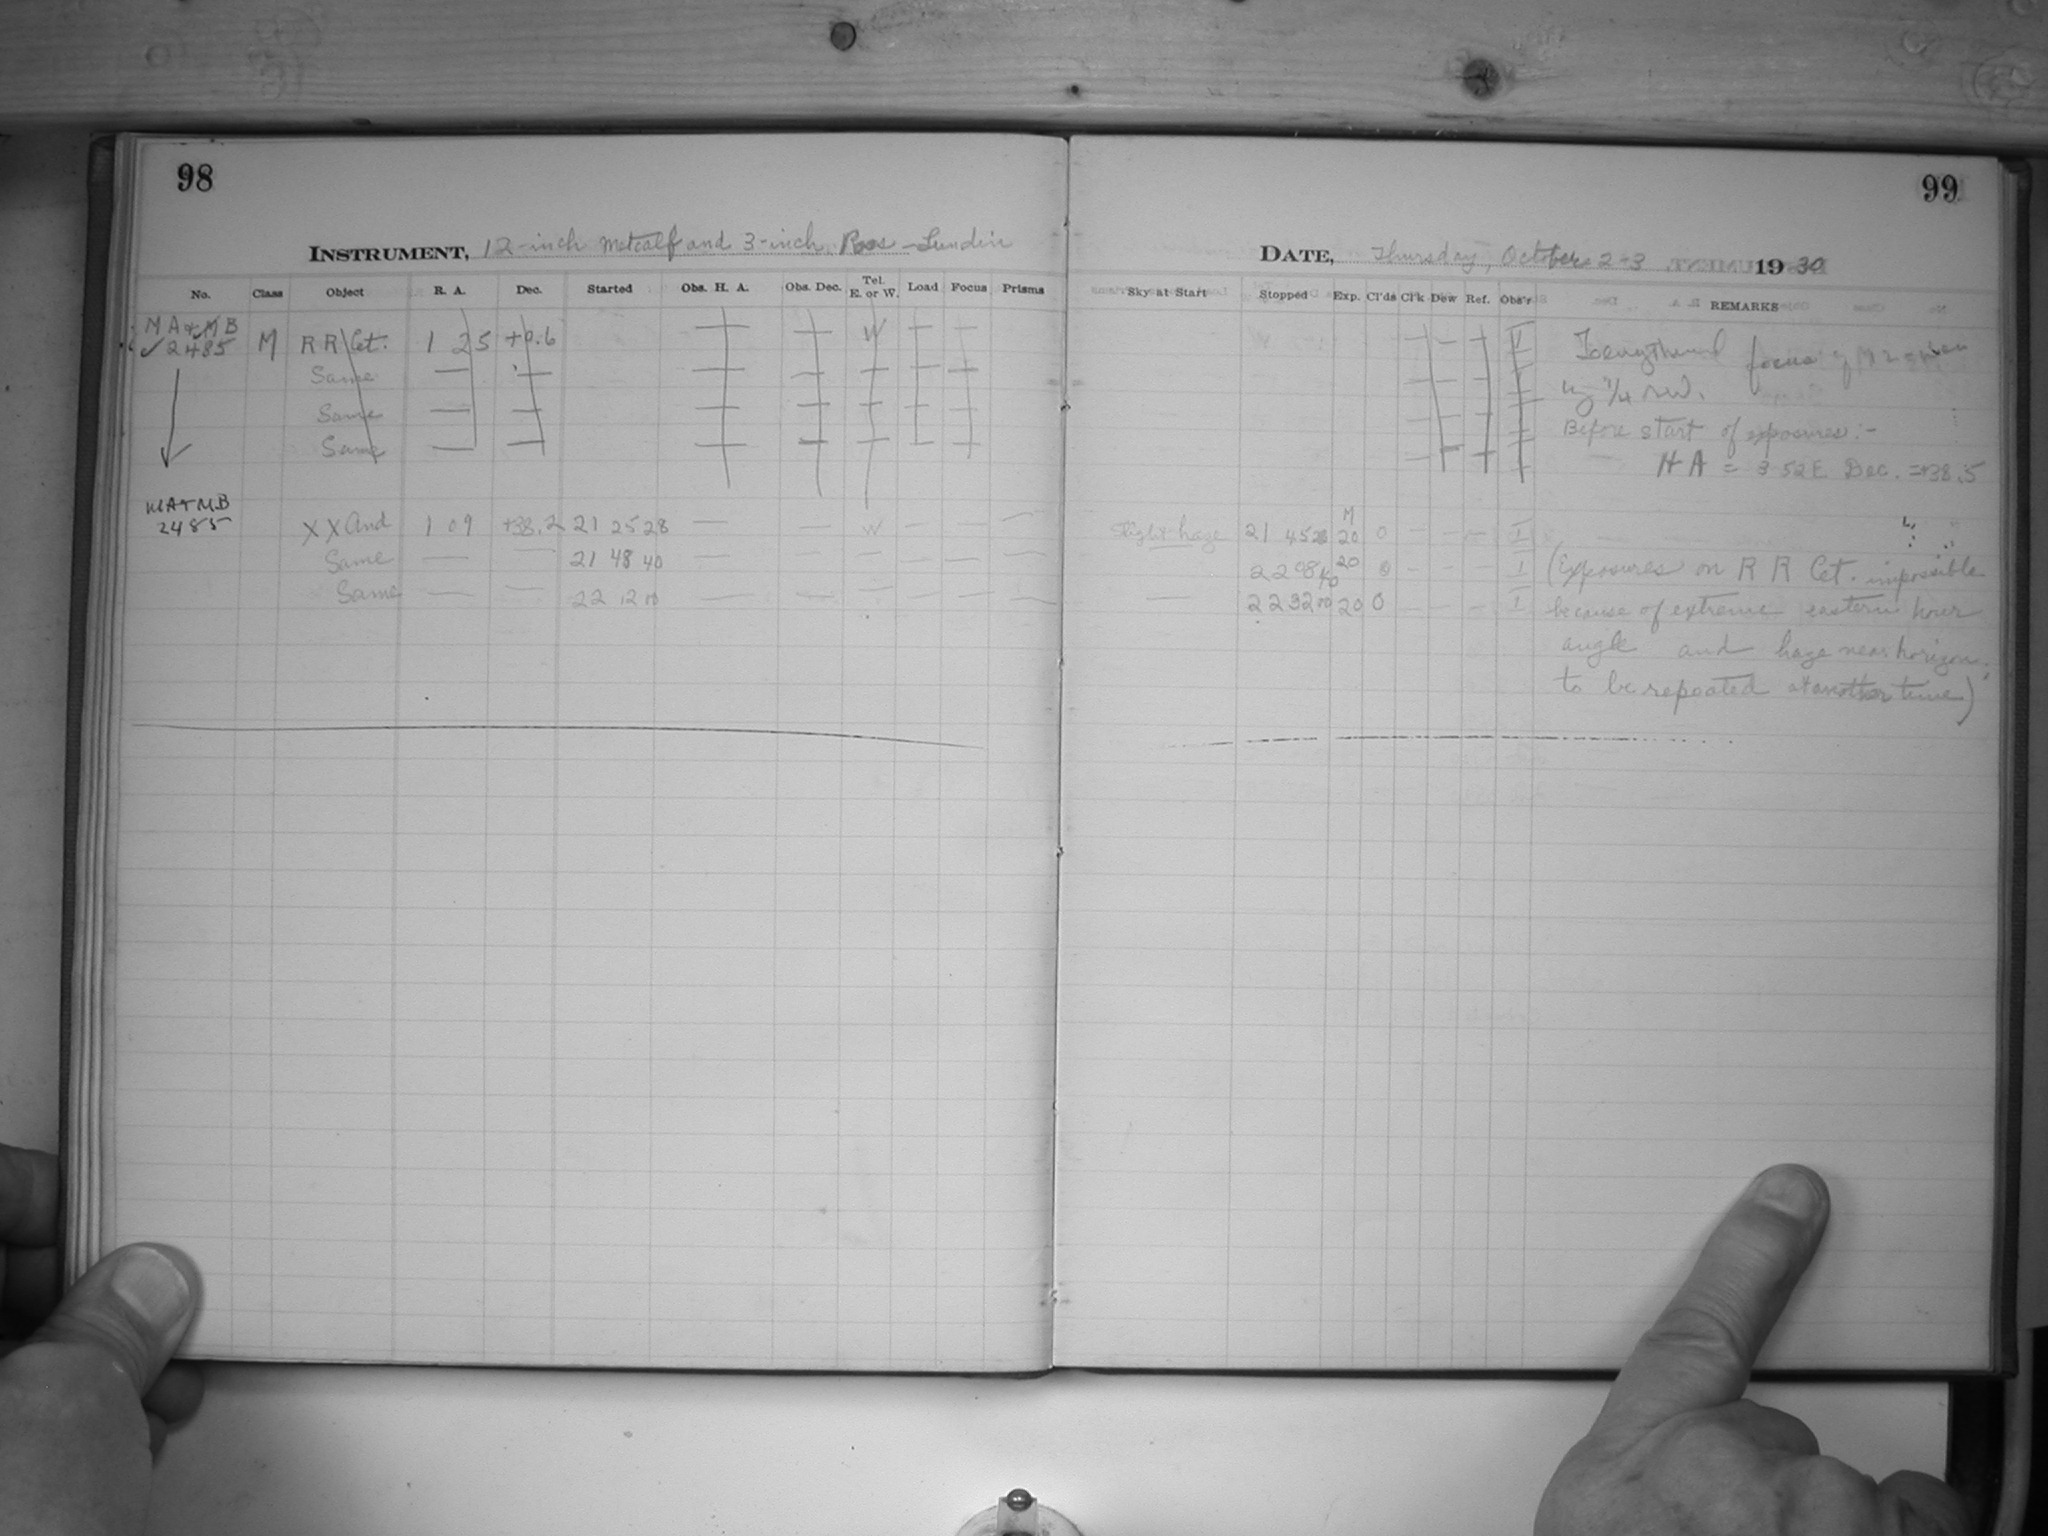 98
INSTRUMENT, 12-inch Metcalf and 3-inch Ross-Lundin
No. Class Object R. A. Dec. Started Obs. H. A. Obs. Dec. Tel. E. or W. Load Focus Prisms
MA & MB
✓ 2485 M RR Cet. 1 25 +0.6 — — W — —
Same — — — — — — —
Same — — — — — — —
Same — — — — — — —
MA & MB
2485 XX And 1 09 +38.2 21 25 28 — — W — — —
Same — — 21 48 40 — — — — —
Same — — 22 12 10 — — — — — —
99
DATE, Thursday, October 2-3 1930
Sky at Start Stopped Exp. Cl'ds Cl'k Dew Ref. Obs'r REMARKS
focus of
by 1/4 rev.
Before start of exposures:-
HA = 3 52 E. Dec. = +38.5
M
Slight haze 21 45 28 20 0 — — — I
22 08 40 20 0 - - - I (Exposures on RR Cet. impossible
— 22 32 10 20 0 — — — I because of extreme eastern hour
angle and haze near horizon,
to be repeated at another time)